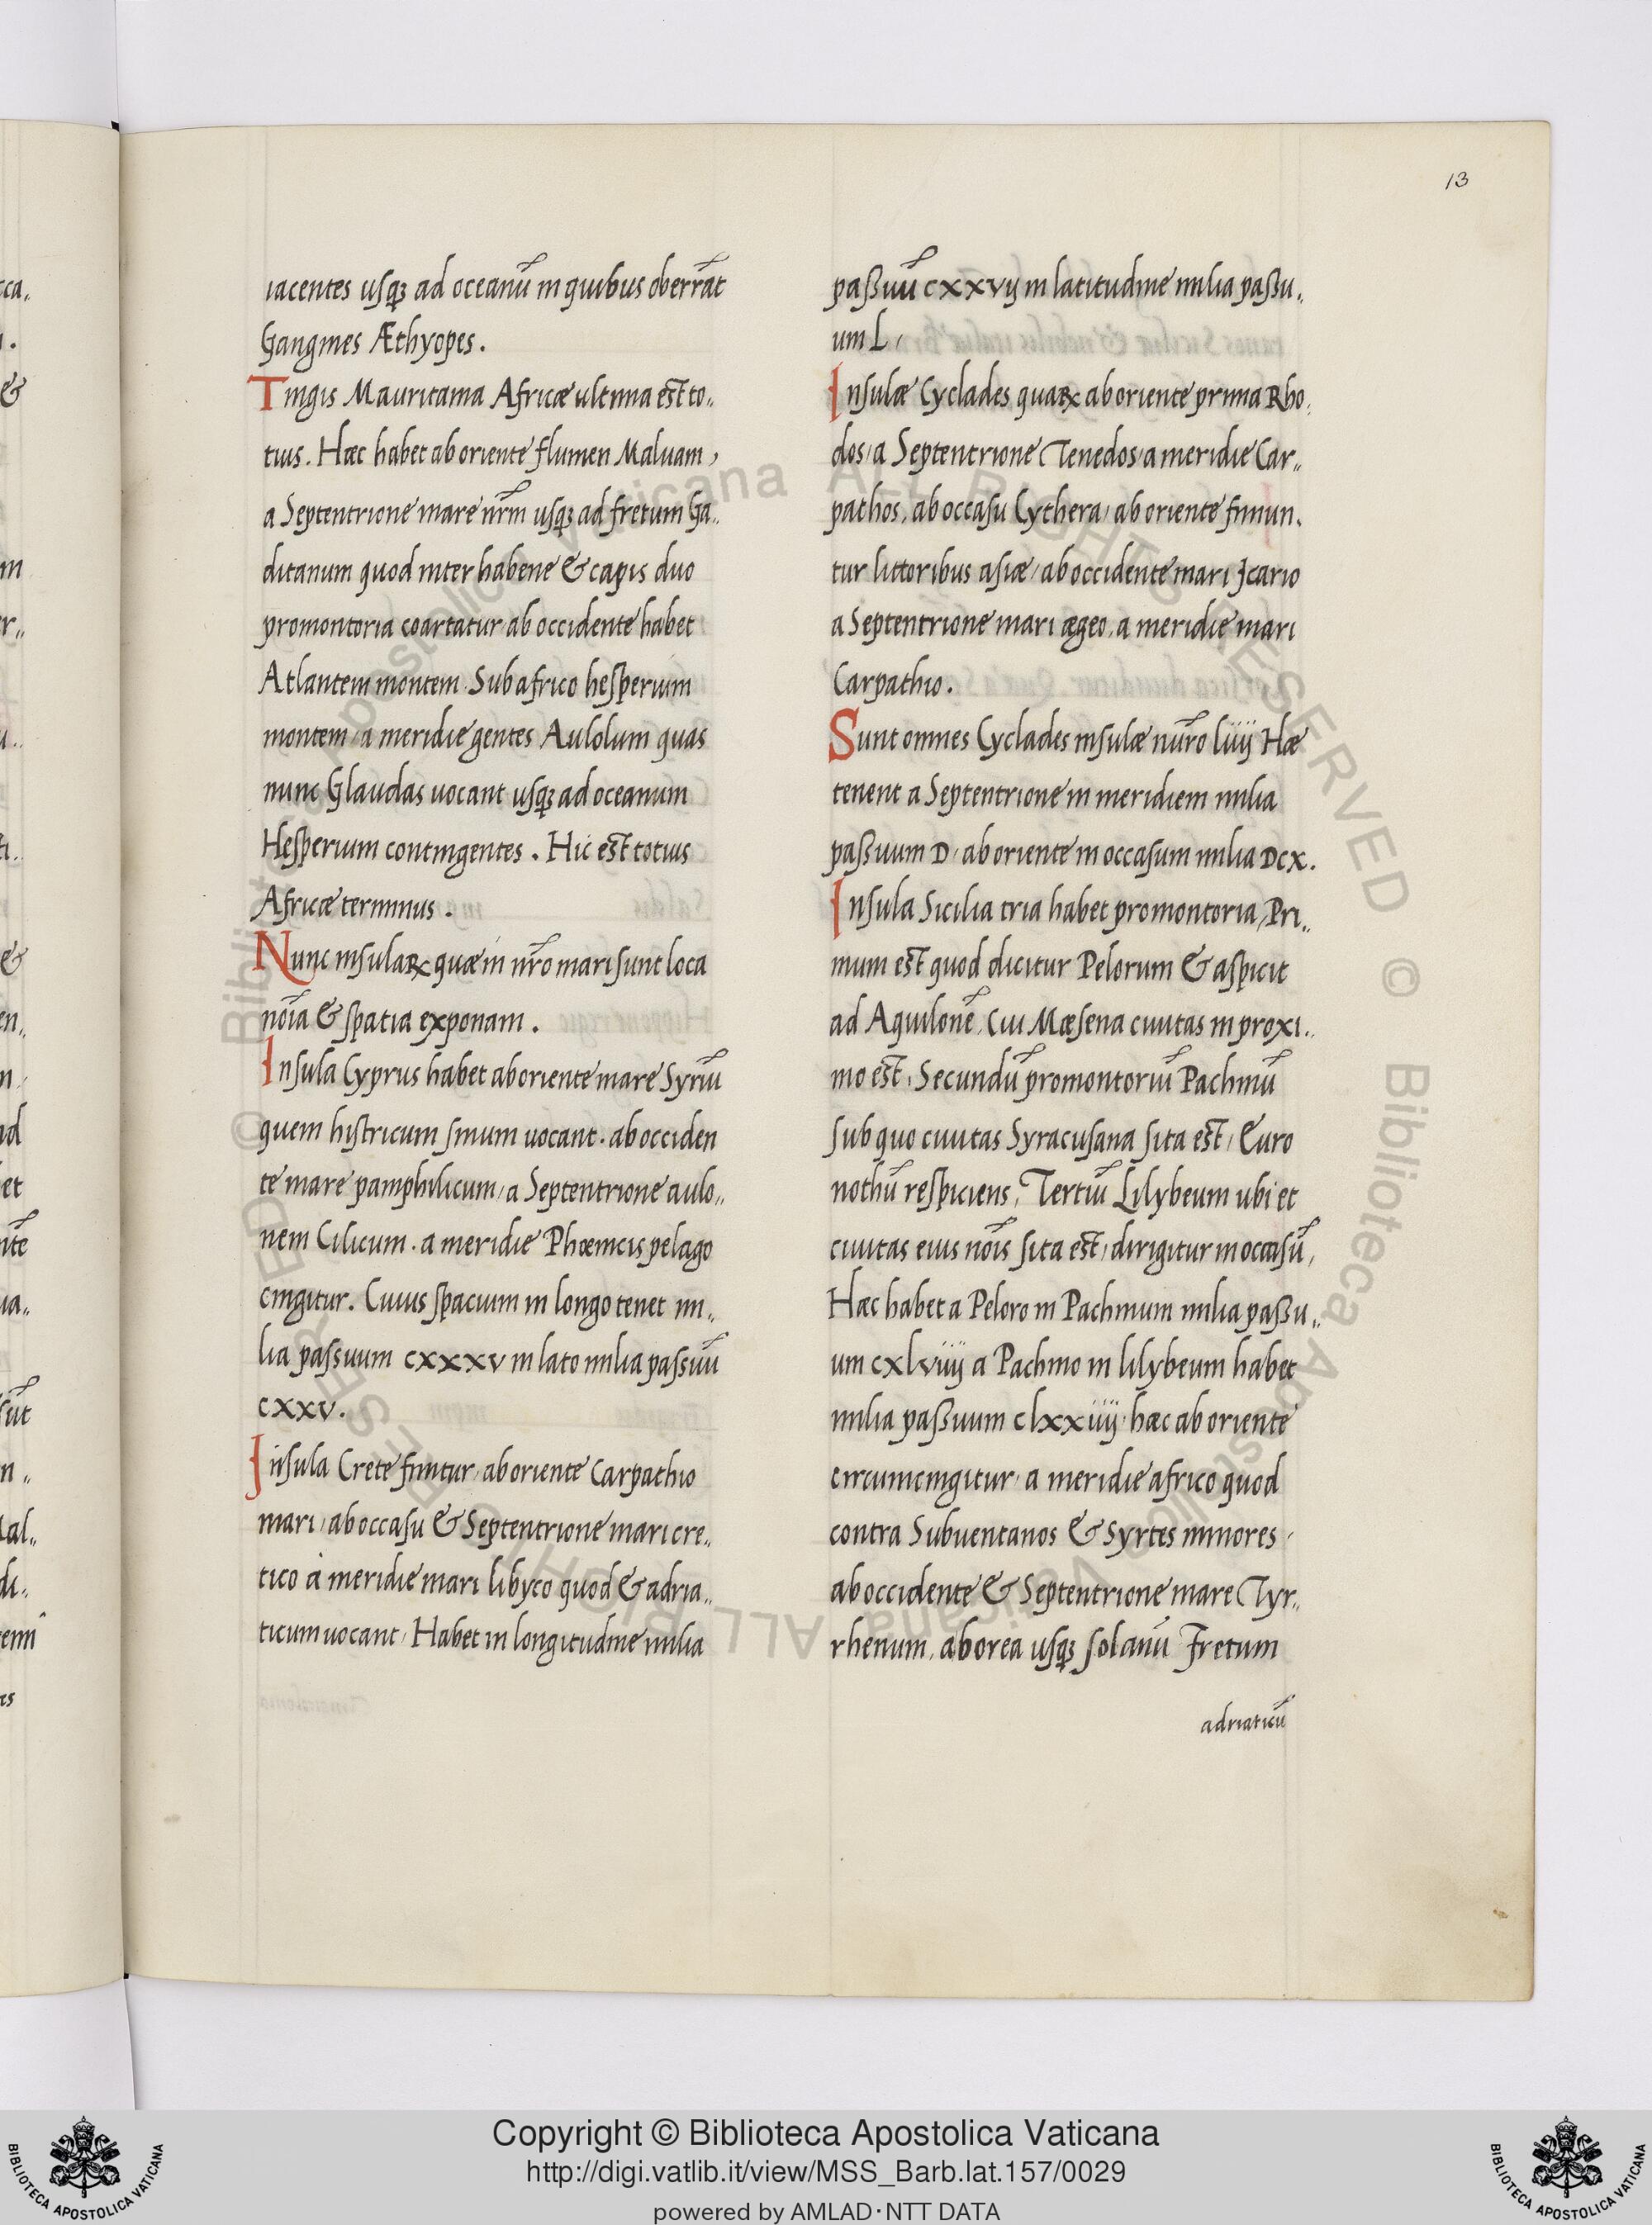 13
iacentes usqꝫ ad oceanū in quibus oberrāt
Gangines Æthyopes.
Tingis Mauritania Africæ ultima est to„
tius. Hæc habet ab oriente flumen Maluam,
a Septentrione mare nr̄m usqꝫ ad fretum Ga„
ditanum quod inter habene & capis duo
promontoria coartatur, ab occidente habet
Atlantem montem. Sub africo hesperium
montem, a meridie gentes Aulolum quas
nunc Glaudas uocant usqꝫ ad oceanum
Hesperium contingentes. Hic est totius
Africæ terminus.
Nunc insulaꝝ quæ in nr̄o mari sunt loca
noīa & spatia exponam.
Insula Cyprus habet ab oriente mare Syriū
quem histricum sinum uocant. ab occiden
te mare pamphilicum, a Septentrione aulo„
nem Cilicum. a meridie Phœnicis pelago
cingitur. Cuius spacium in longo tenet mi„
lia passuum cxxxv in lato milia passuū
cxxv.
Insula Crete finitur, ab oriente Carpathio
mari, ab occasu & Septentrione mari cre„
tico à meridie mari libyco quod & adria„
ticum uocant, Habet in longitudine milia
paßuuū cxxvij in latitudine milia paßu„
um L,
Insulæ Cyclades quaꝝ ab oriente prima Rho„
dos, a Septentrione Tenedos, a meridie Car„
pathos, ab occasu Cythera, ab oriente finiun„
tur littoribus asiæ, ab occidente mari Icario
a Septentrione mari ægeo, a meridie mari
Carpathio.
Sunt omnes Cyclades insulæ nūro liiij Hæ
tenent a Septentrione in meridiem milia
paßuum D, ab oriente in occasum milia Dcx.
Insula Sicilia tria habet promontoria, Pri„
mum est quod dicitur Pelorum & aspicit
ad Aquilonē, Cui Mæsena ciuitas in proxi„
mo est, Secundū promontoriū Pachinū
sub quo ciuitas Syracusana sita est, Euro
nothū respiciens, Tertiū Lilybeum ubi et
ciuitas eius noīs sita est, dirigitur in occasū,
Hæc habet a Peloro in Pachinum milia paßu„
um cxlviiij a Pachino in lilybeum habet
milia paßuum clxxiiij, hæc ab oriente
circumcingitur, a meridie africo quod
contra Subuentanos & Syrtes minores,
ab occidente & Septentrione mare Tyr„
rhenum, a borea usqꝫ solanū Fretum
adriaticū
Copyright © Biblioteca Apostolica Vaticana
http://digi.vatlib.it/view/MSS_Barb.lat.157/0029
powered by AMLAD·NTT DATA